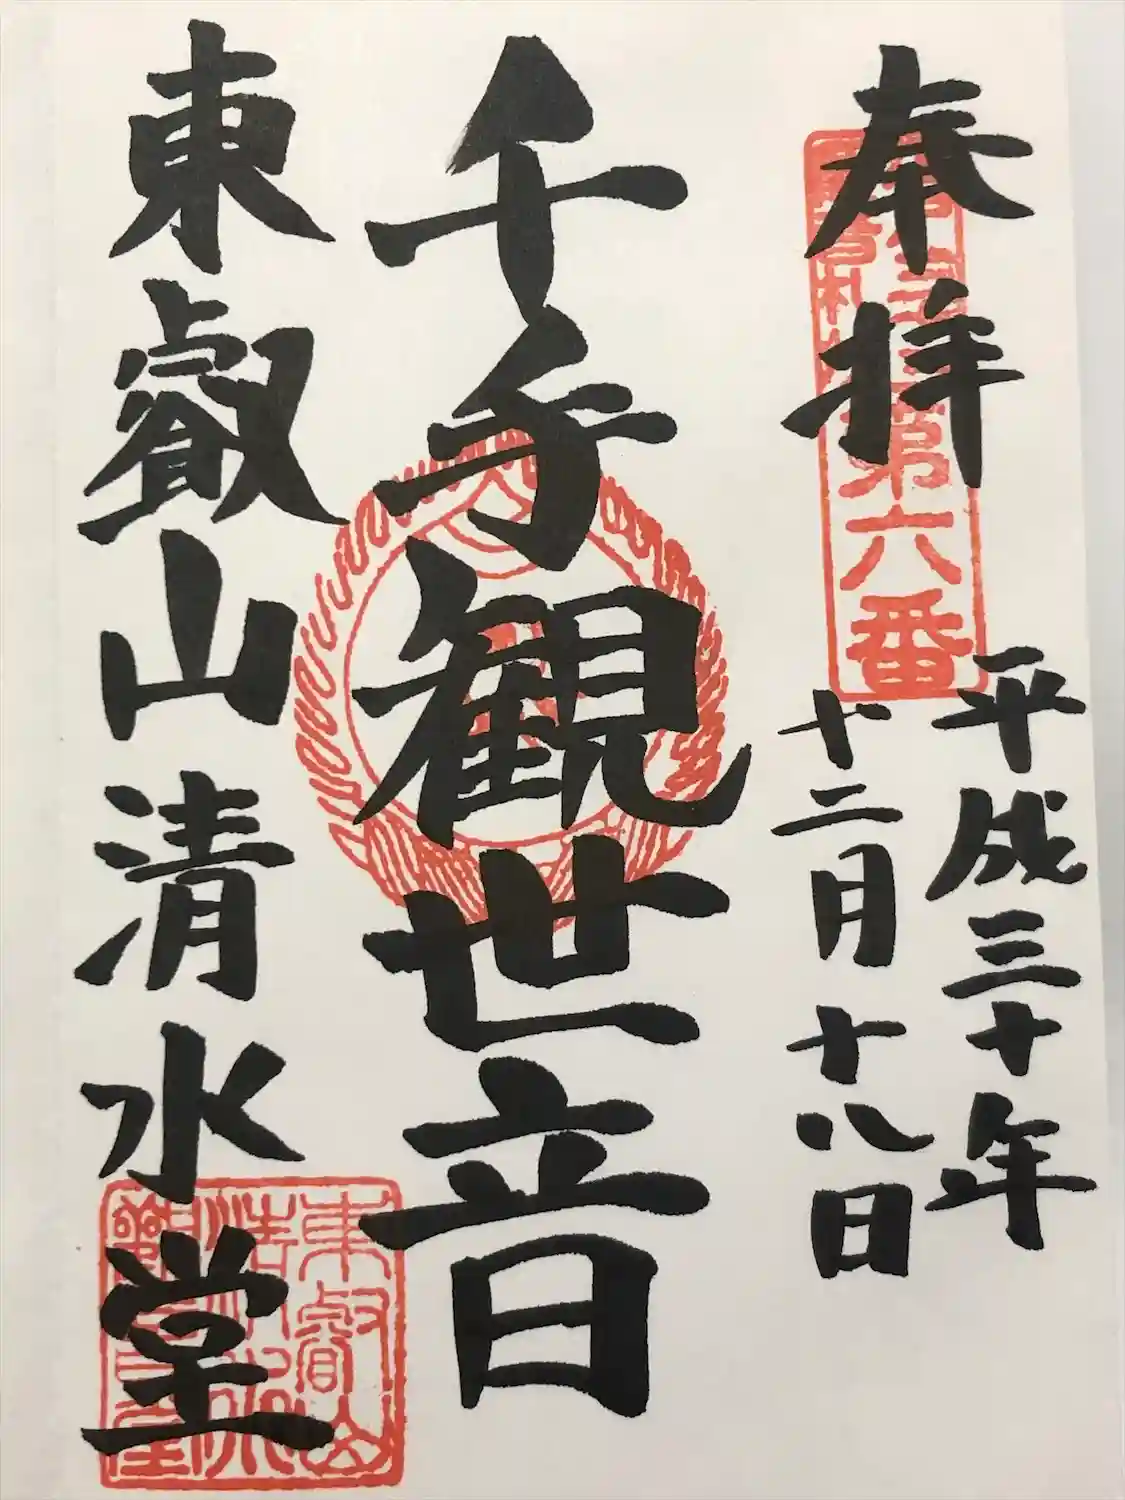 奉拝
第六番
平成三十年
十二月十八日
千手観世音
東叡山清水堂
東叡山
清水